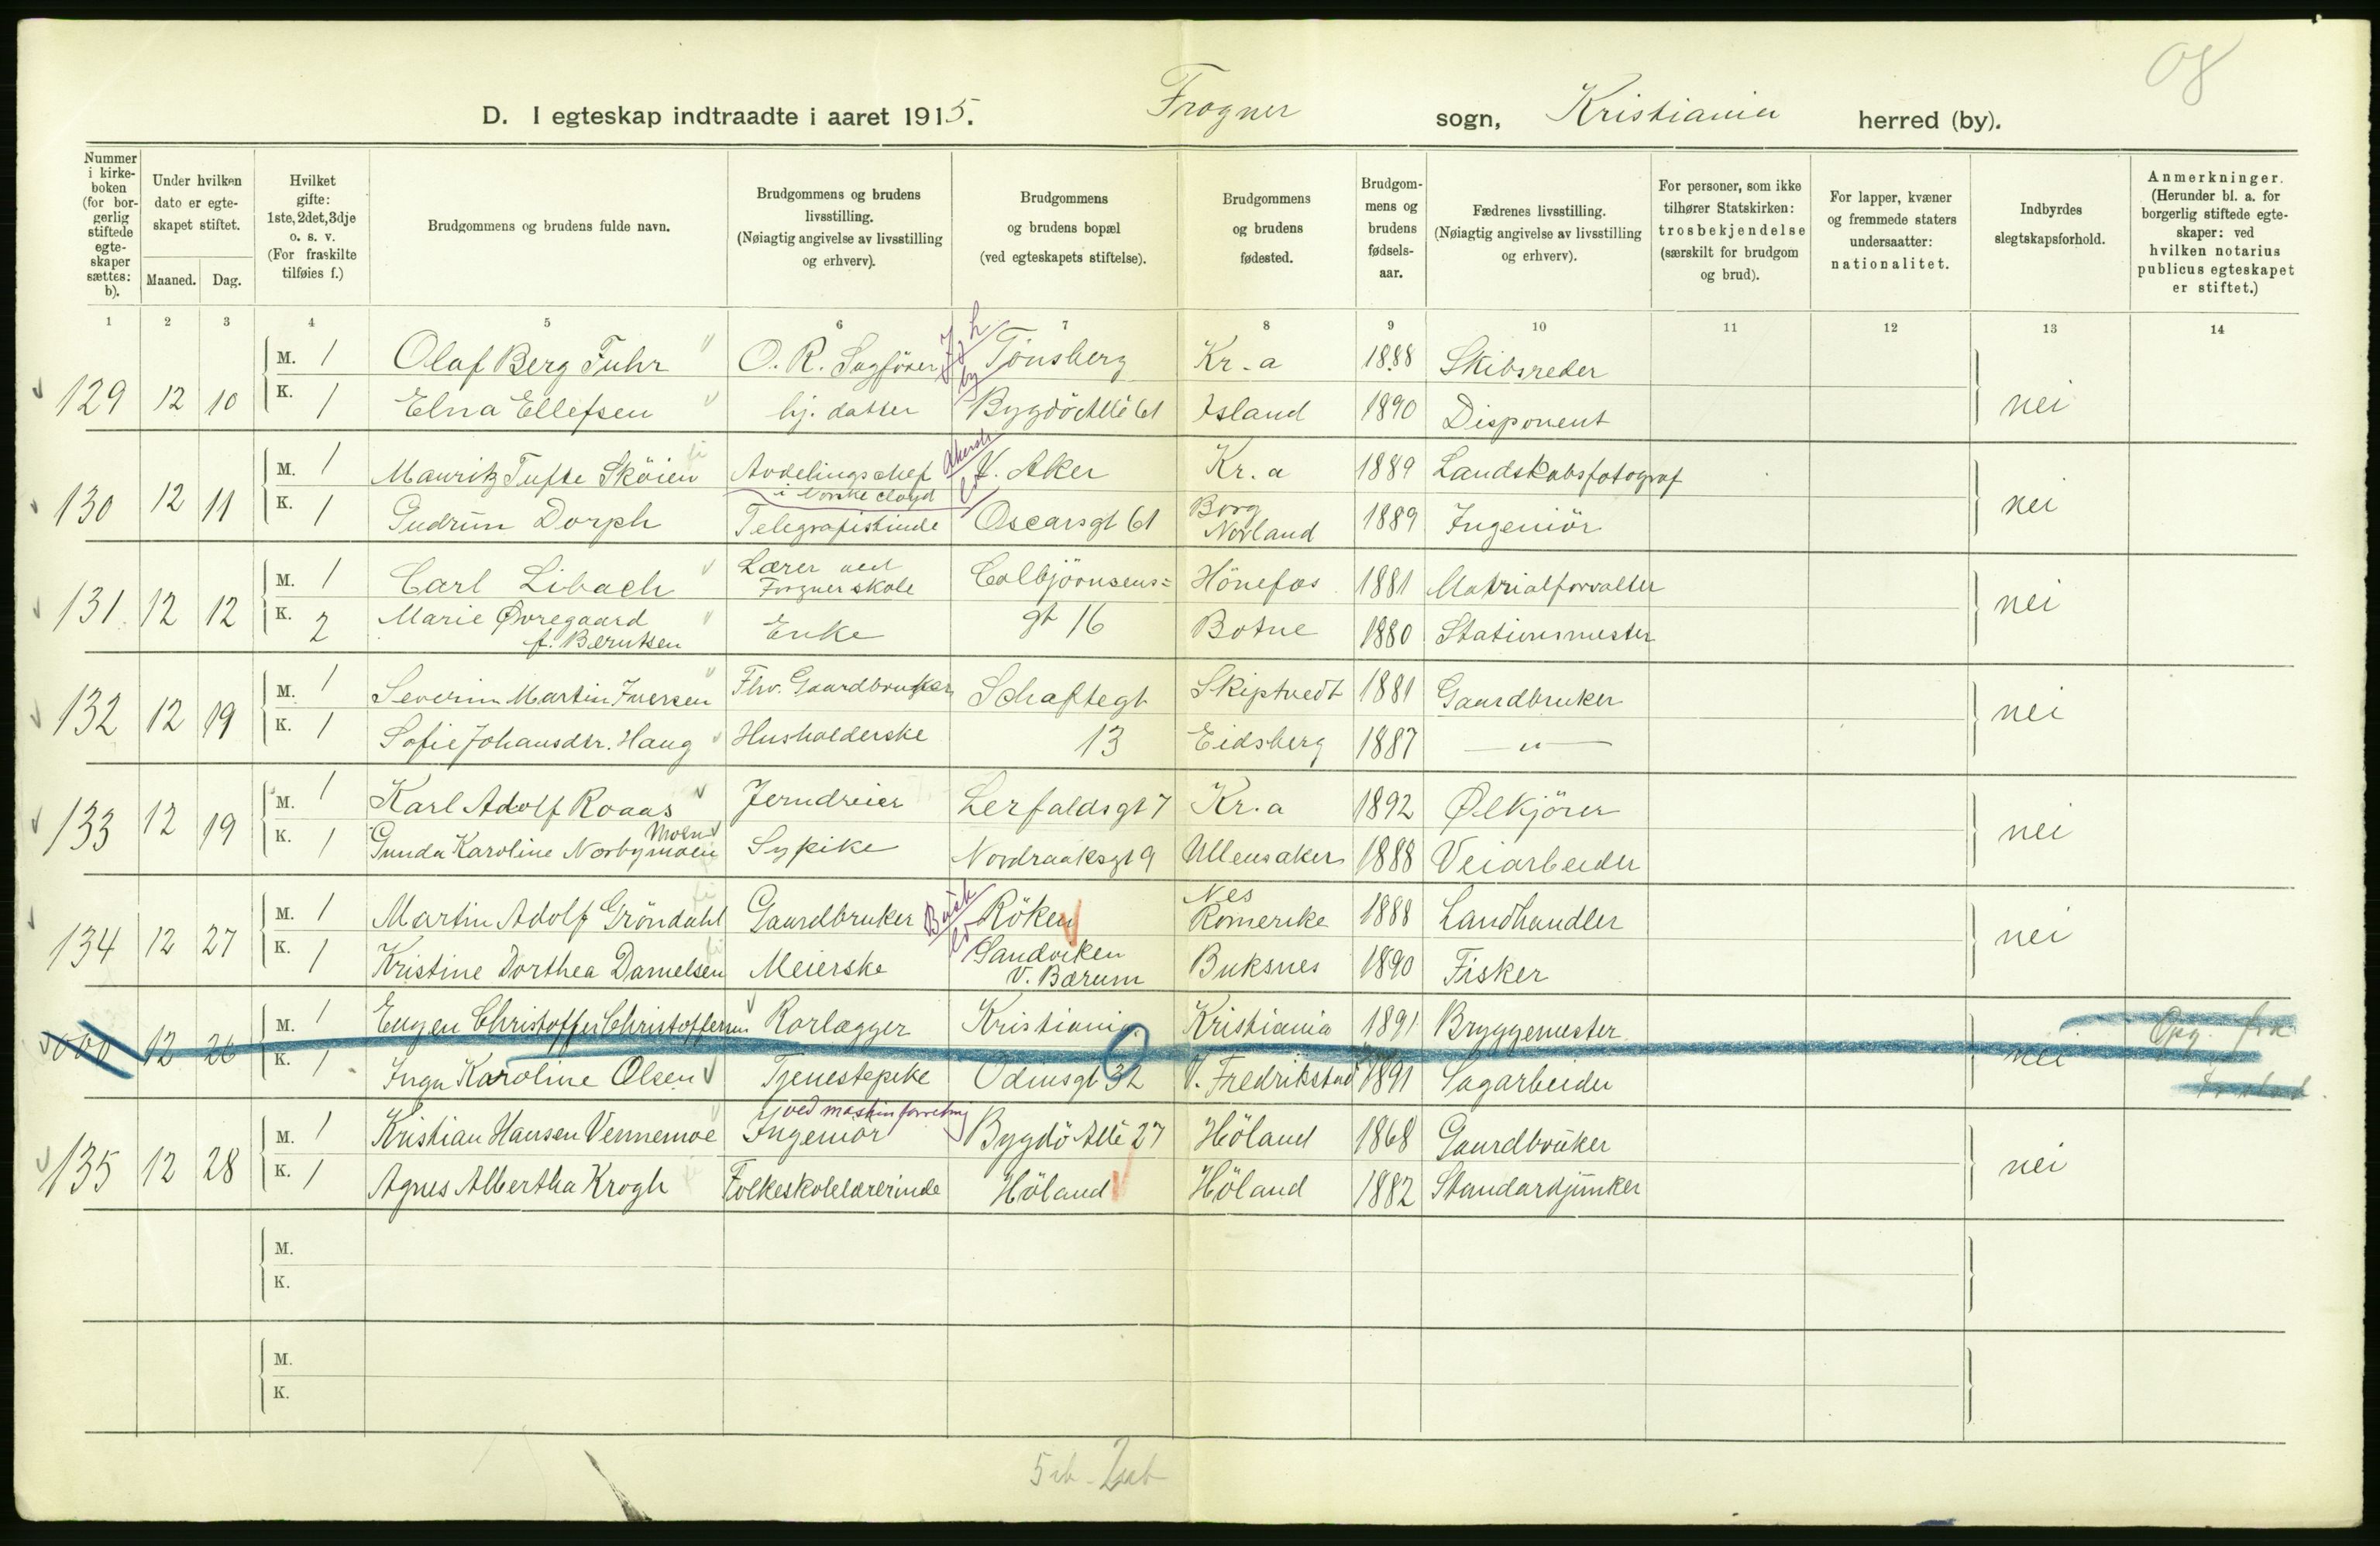 08
D. I egteskap indtraadte i aaret 1915. Frogner sogn, Kristiania herred (by).
Nummer i kirke-boken (for bor-gerlig stiftede egte-skaper sættes: b).
Under hvilken dato er egte-skapet stiftet.
Maaned. Dag.
Hvilket gifte: 1ste, 2det, 3dje o. s. v. (For fraskilte tilføies f.)
Brudgommens og brudens fulde navn.
Brudgommens og brudens livsstilling. (Nøiagtig angivelse av livsstilling og erhverv).
Brudgommens og brudens bopæl (ved egteskapets stiftelse).
Brudgommens og brudens fødested.
Brudgom-mens og brudens fødsels-aar.
Fædrenes livsstilling. (Nøiagtig angivelse av livsstilling og erhverv).
For personer, som ikke tilhører Statskirken: trosbekjendelse (særskilt for brudgom og brud).
For lapper, kvæner og fremmede staters undersaatter: nationalitet.
Indbyrdes slegtskapsforhold.
Anmerkninger. (Herunder bl. a. for borgerlig stiftede egte-skaper: ved hvilken notarius publicus egteskapet er stiftet.)
1 2 3 4 5 6 7 8 9 10 11 12 13 14
M. 1 Olaf Berg Fuhr O. R. Sagförer Tönsberg Kr.a 1888 Skibsreder
129 12 10 K. 1 Elna Ellefsen hj. datter Bygdö Allé 61 Island 1890 Disponent nei
M. 1 Mauritz Tufte Sköien Avdelingschef i Norske Lloyd V. Aker Kr.a 1889 Landskabsfotograf
130 12 11 K. 1 Gudrun Dorph Telegrafistinde Oscarsgt 61 Borg Norland 1889 Ingeniör nei
M. 1 Carl Libach Lærer ved Frognerskole Colbjörnsens= Hönefos 1881 Matrialforvalter
131. 12 12 K. 2 Marie Øvregaard f. Berntsen Enke gt 16 Botne 1880 Stationsmester nei
M. 1 Severin Martin Iversen Fhv. Gaardbruker Schaftegt Skiptvedt 1881 Gaardbruker
132 12 19 K. 1 Sofie Johansdtr. Haug Husholderske 13 Eidsberg 1887 — " — nei
M. 1 Karl Adolf Roaas Jerndreier Lerfaldsgt 7 Kr.a 1892 Ølkjörer
133 12 19 K. 1 Gunda Karoline Norbymoen Moen Sypike Nordraaksgt 9 Ullensaker 1888 Veiarbeider nei
M. 1 Martin Adolf Gröndahl Gaardbruker Busk Röken Nes Romerike 1888 Landhandler
134 12 27 K. 1 Kristine Dorthea Danielsen Meierske Sandviken V. Bærum Buksnes 1890 Fisker nei
M. 1 Eugen Christoffer Christoffersen Rørlægger Kristiania Kristiania 1891 Bryggemester Opg. fra
000 12 26 K. 1 Inga Karoline Olsen Tjenestepike Odinsgt 32 V. Fredrikstad 1891 Sagarbeider nei
M. 1 Kristian Hansen Vennemoe Ingeniör ved maskinforretning Bygdö Allé 27 Höland 1868 Gaardbruker
135 12 28 K. 1 Agnes Albertha Krogh Folkeskolelærerinde Höland Höland 1882 Standardjunker nei
M.
K.
M.
K.